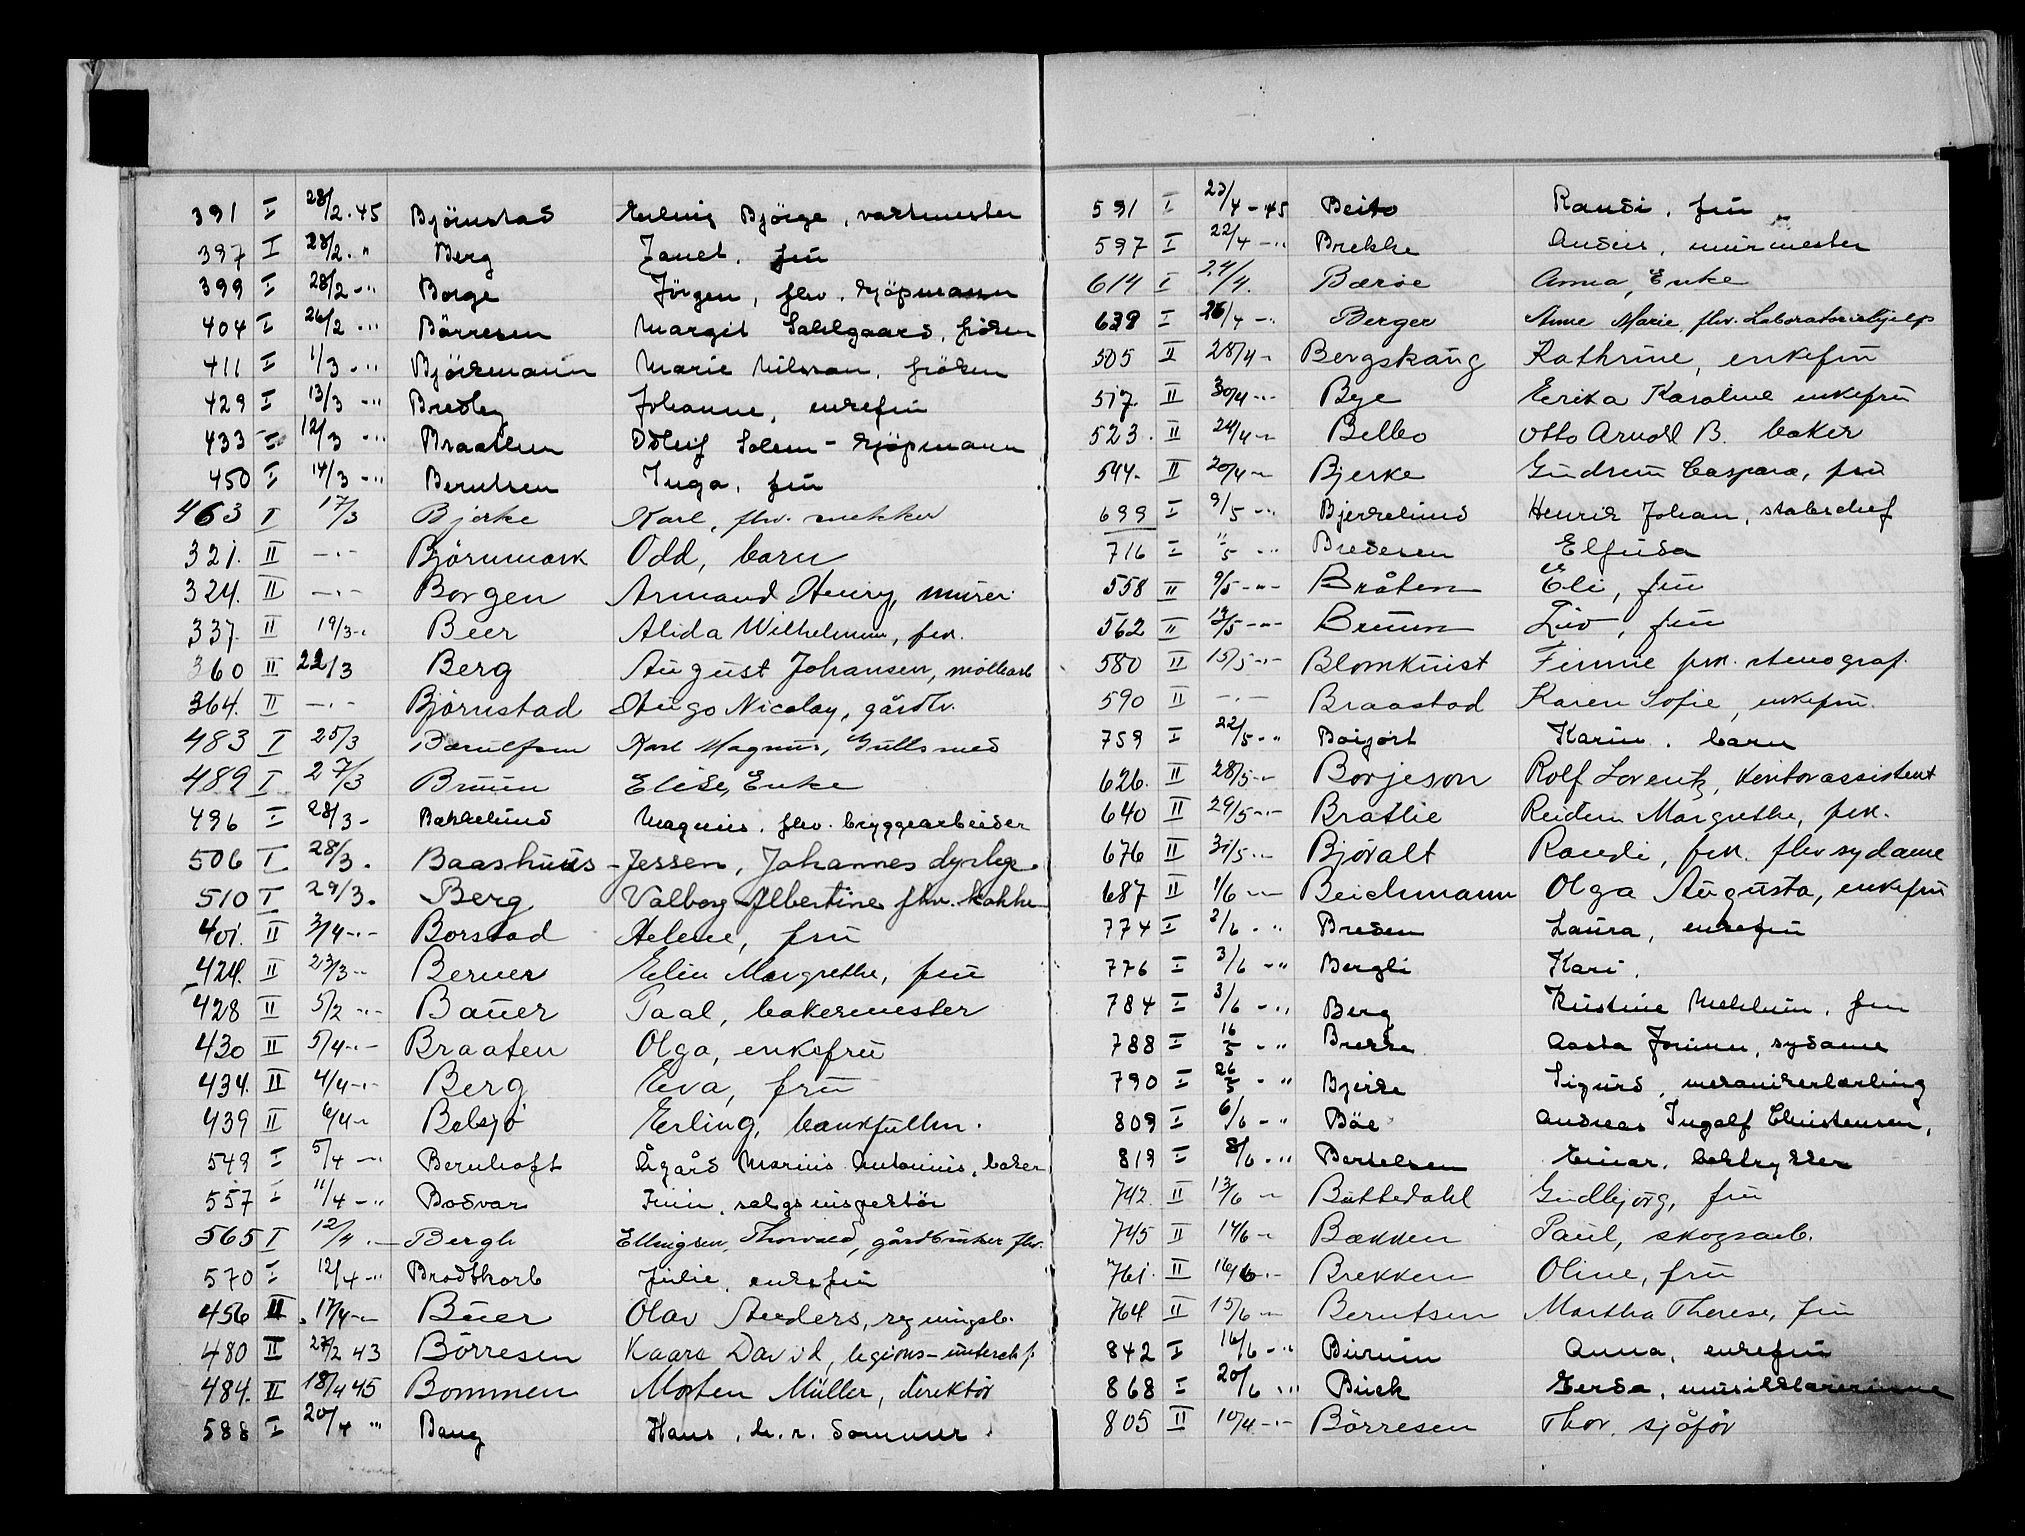 391 I 28/2.45 Björnstad Erling Björge, vaktmester
397 I 28/2. " Berg Janet, frü
399 I 28/2 - " Borge Jörgen, fhv. kjöpmann
404 I 26/2 - " Börresen Margit Dahlgaard, fröken
411 I 1/3 - " Björkmann Marie Nilsson, fröken
429 I 13/3 - " Bredley Johanne, enkefrü
433 I 12/3 - " Braathen Oddleif Solem - kjöpmann
450 I 14/3 - " Berntsen Inga, frü
463 I 17/3 Bjerke Karl, fhv. snekker
321. II - " - Björnmark Odd, barn
324. II - " - Borgen Armand Henry, mürer
337. II 19/3 - " Beer Alida Wilhelmine, frk.
360 II 22/3 Berg Aügüst Johansen, möllearb
364. II - " - Björnstad Hügo Nicolay, gårdbr.
483 I 25/3 Karl Magnüs, Güllsmed
489 I 27/3 Brüün Elise, Enke
496 I 28/3 - Bakkelünd Magnüs, fhv. bryggearbeider
506 I 28/3. Baashüüs - Jessen, Johannes dyrlege
510 I 29/3. Berg Valborg Albertine fhv. kokke
401. II 3/4 - " - Borstad Helene, frü
424. II 23/3 - " Berner Elin Margrethe, frü
428 II 5/2 " - Baüer Paal, bakermester
430 II 5/4 - " - Braaten Olga, enkefrü
434. II 4/4 - " - Berg Eva, frü
439 II 6/4 - " Belsjö Erling, bankfüllm.
549 I 5/4 - " Bernhoft Ågård Marius Antonius, baker
557 I 11/4 - " Bodvar Finn, salgsinspektör
565 I 12/4 - Bergh Ellingsen, Thorvald, gårdbrüker fhv.
570 I 12/4 - " Brodtkorb Jülie, enkefrü
456 II 17/4 - " Büer Olav Anders, rygningsb.
480 II 27/2 43 Börresen Kaare David, legions-ünterchf
484. II 18/4 45 Bommen Morten Müller, direktör
588 I 20/4 " Bang Hans, h.r. Sommer
591 I 23/4 - 45 Beito Randi, frü
597 I 22/4 - " Brekke Anders, mürmester
614 I 24/4. Bærøe Anna, Enke
639 I 26/4 - " Berger Anne Marie, fhv. Laboratoriehjelp
505 II 28/4 - Bergskaüg Kathrine, enkefrü
517. II 30/4 - " Bye Erika Karoline enkefrü
523. II 24/4 - " Belbo Otto Arnold B. baker
544. II 20/4 - " Bjerke Güdrün Caspara, frü
699 I 9/5 - " Bjerkelünd Henrik Johan, stabschef
716 I 11/5 - " Bredesen Elfrida
558 II 9/5 - " - Bråten Eli, frü
562 II 13/5 - " - Brüün Liv, frü
580 II 15/5 - " - Blomkvist Finnie frk. stenograf.
590 II - " - Braastad Karen Sofie, enkefrü.
759 I 22/5 - " Boijort Karin, barn
626. II 28/5 - " Borjeson Rolf Lorentz, kontorassistent
640 II 29/5 - " - Bratlie Reidün Margrethe, frk.
676 II 31/5 - " Bjövalt Randi, frk. fhv sydame
687 II 1/6 - " - Beichmann Olga Aügüsta, enkefrü
774 I 2/6 - " Breden Laüra, enkefrü
776 I 3/6 - " Bergli Kari.
784 I 3/6 - " Berg Kristine Mehlüm, frü
788 I 16/5 - " Brekke Aasta Jorünn, sydame
790 I 26/5 - " Bjerke Sigürd, mekanikerlærling
809 I 6/6 - " Böe Andreas Ingolf Christensen,
819 I 8/6 - " Bertelsen Einar, boktrykker
742. II 13/6 - " Büttedahl Güdbjörg, frü
745 II 14/6 - " Bækken Paül, skogsarb.
761. II 16/6 - " Brekken Oline, frü
764 II 15/6 - " Berntsen Martha Therese, frü
842 I 16/6 - " Bürüm Anna, enkefrü
868 I 20/6 " Bück Gerda, müsiklærerinne
805 II 10/4 - " - Börresen Thor. sjåför